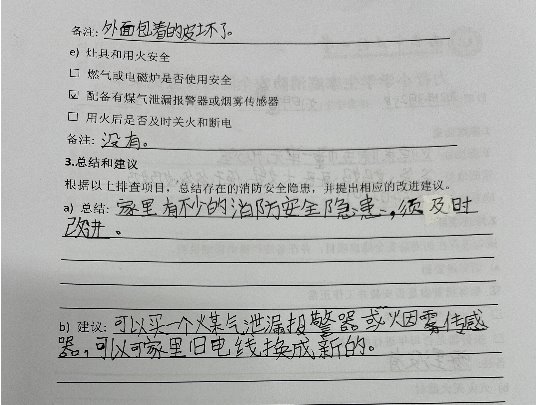 备注: 外面包着的皮坏了。
e) 灶具和用火安全
☐ 燃气或电磁炉是否使用安全
☑ 配备有煤气泄漏报警器或烟雾传感器
☐ 用火后是否及时关火和断电
备注: 没有。
3.总结和建议
根据以上排查项目，总结存在的消防安全隐患，并提出相应的改进建议。
a) 总结: 家里有不少的消防安全隐患，须及时
改进。
b) 建议: 可以买一个煤气泄漏报警器或烟雾传感
器，可以可家里旧电线换成新的。